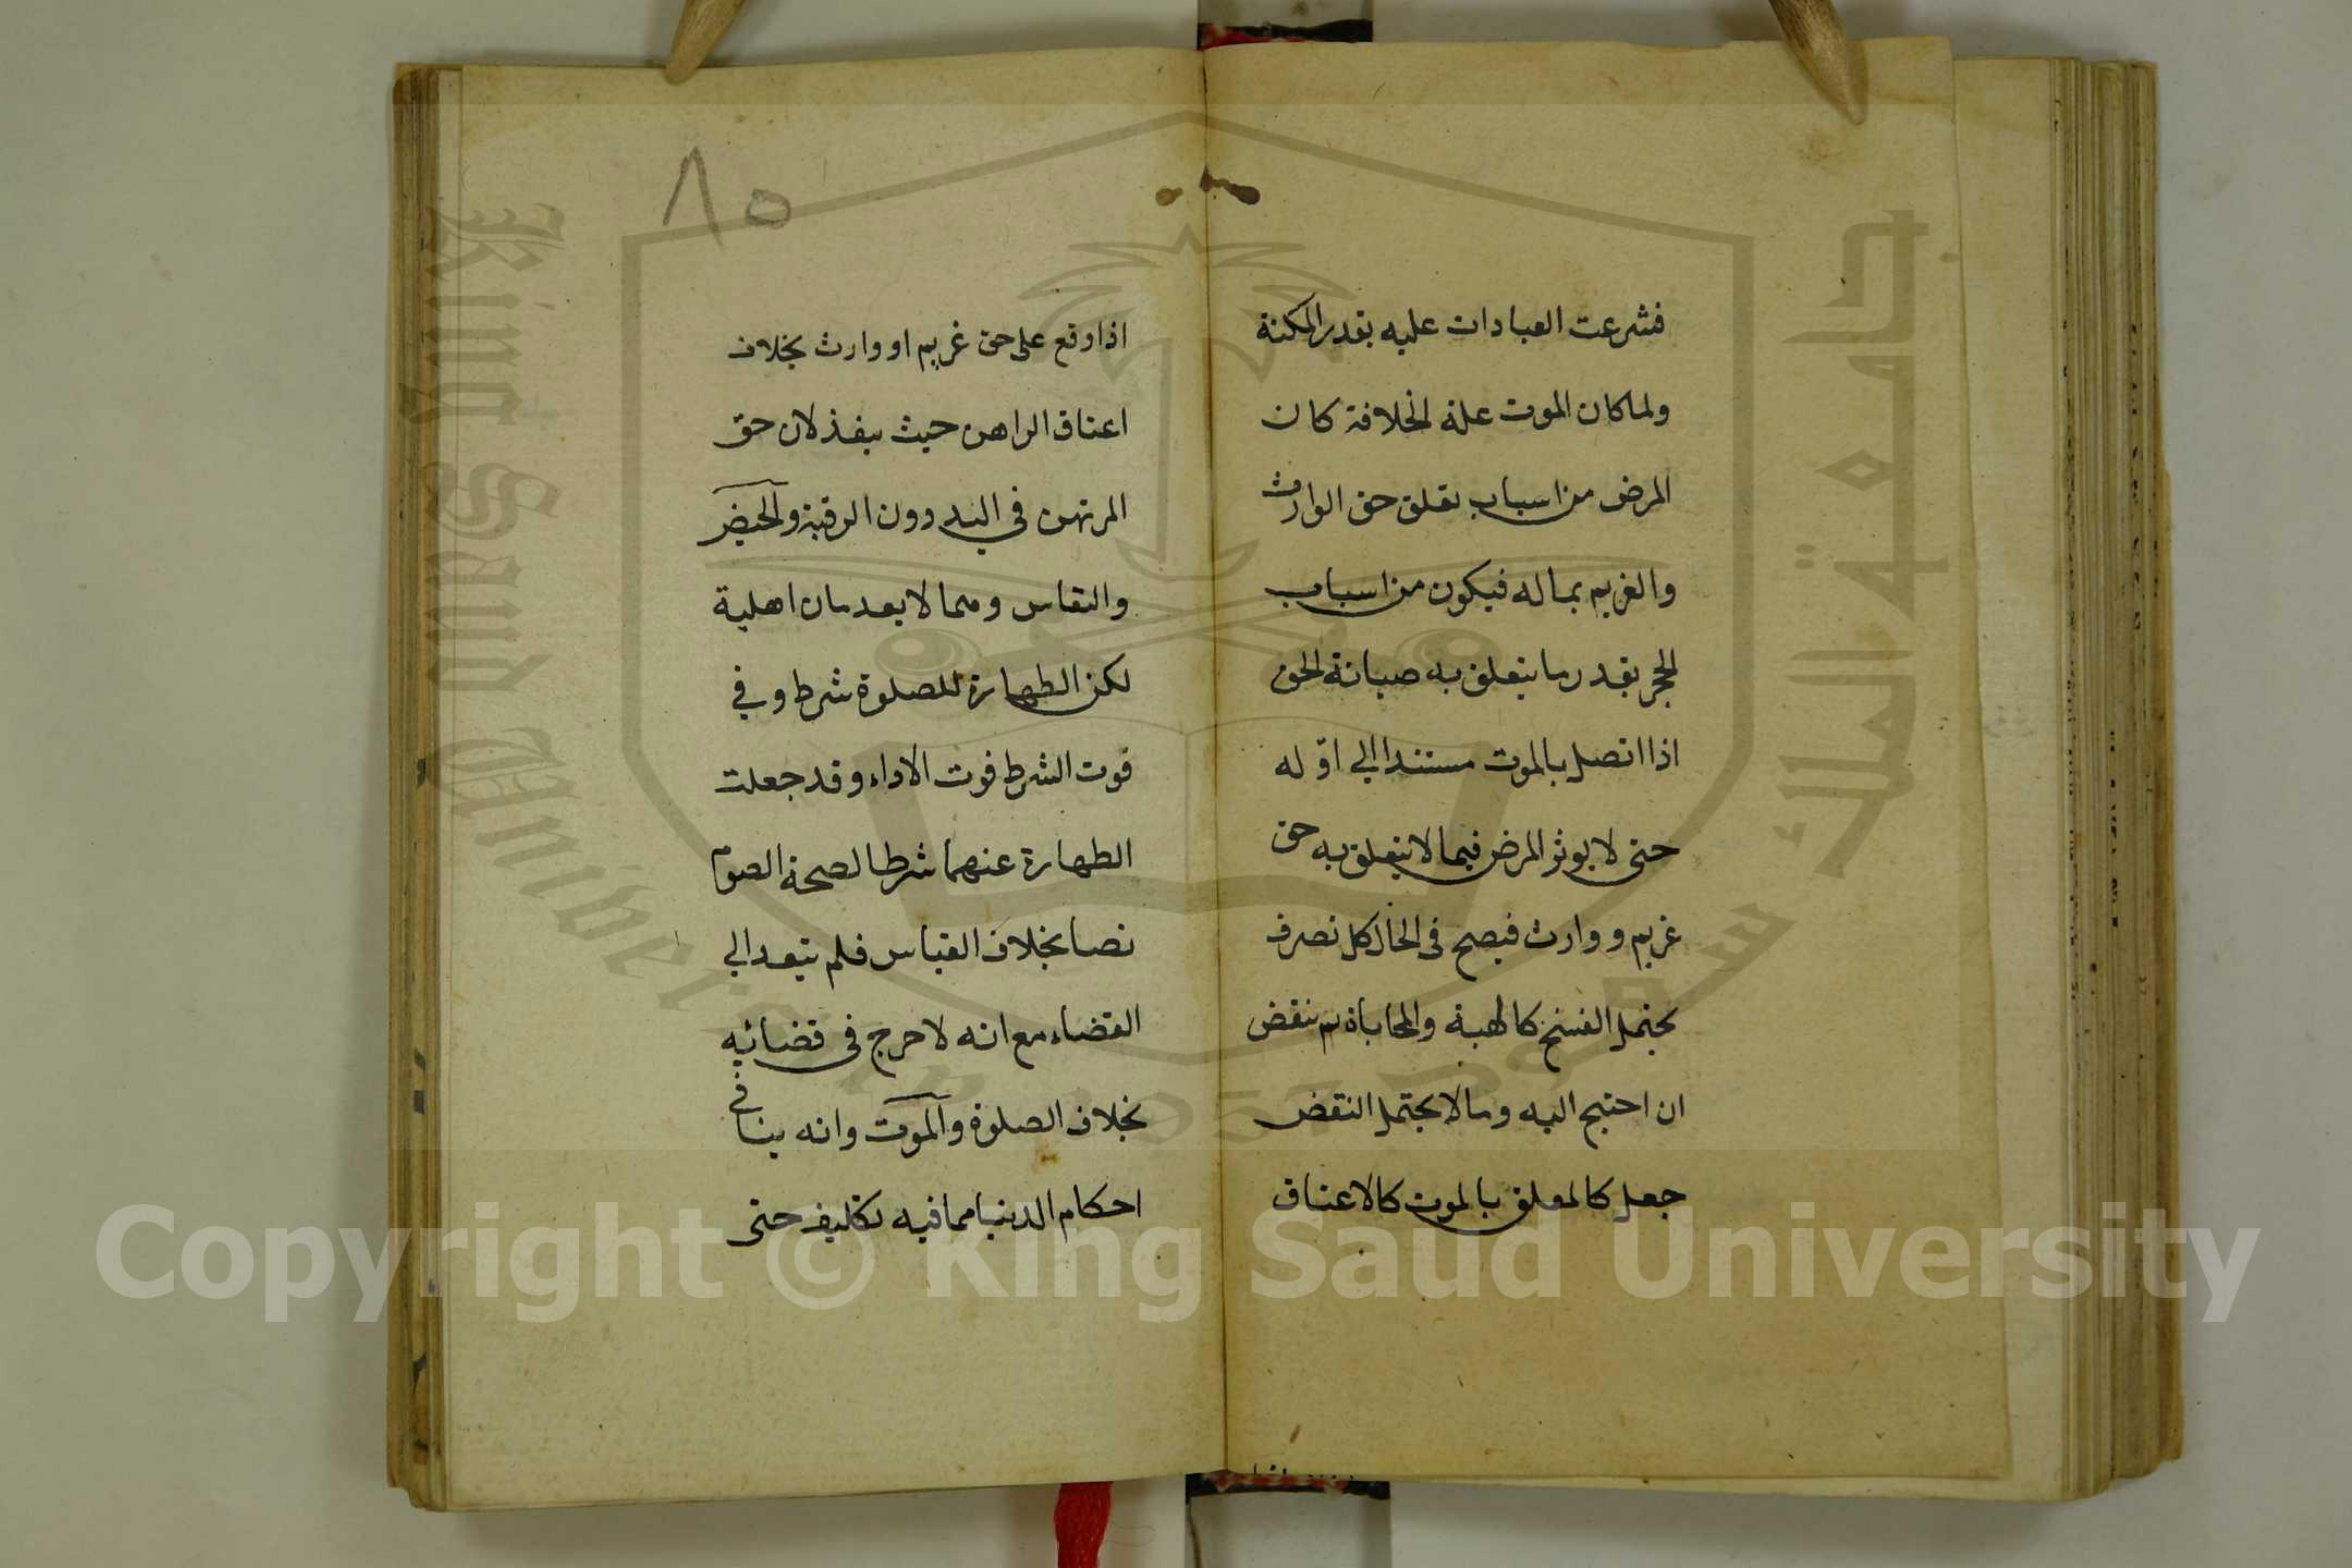 فشرعت العبادات عليه بقدر المكنة
ولما كان الموت علة الخلافة كان
المرض من اسباب تعلق حق الوارث
والغريم بماله فيكون من اسباب
الحجر بقدر ما يتعلق به صيانة الحق
اذا اتصل بالموت مستندا الي اوّله
حتى لا يوثر المرض فيما لا يتعلق به حق
غريم و وارث فيصح في الحال كل تصرف
يحتمل الفسخ كالهبة والمحاباة ثم ينقض
ان احتيج اليه وما لا يحتمل النقض
جعل كالمعلق بالموت كالاعتاق
٨٥
اذا وقع على حق غريم او وارث بخلاف
اعتاق الراهن حيث ينفذ لان حق
المرتهن في اليد دون الرقبة والحيض
والنفاس وهما لا يعدمان اهلية
لكن الطهارة للصلوة شرط وفي
فوت الشرط فوت الاداء وقد جعلت
الطهارة عنهما شرطا لصحة الصوم
نصا بخلاف القياس فلم يتعد الي
القضاء مع انه لا حرج في قضائه
بخلاف الصلوة والموت وانه ينافي
احكام الدنيا مما فيه تكليف حتى
جامعة الملك سعود
King Saud University
1957
Copyright © King Saud University